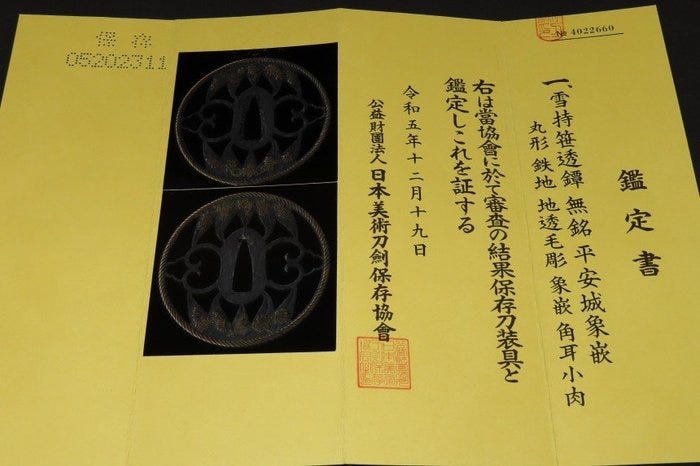 № 4022660
鑑定書
一、雪持笹透鐔 無銘 平安城象嵌
丸形 鉄地 地透毛彫 象嵌 角耳小肉
右は當協會に於て審査の結果保存刀装具と
鑑定しこれを証する
令和五年十二月十九日
公益財團法人 日本美術刀劍保存協會
保存
05202311